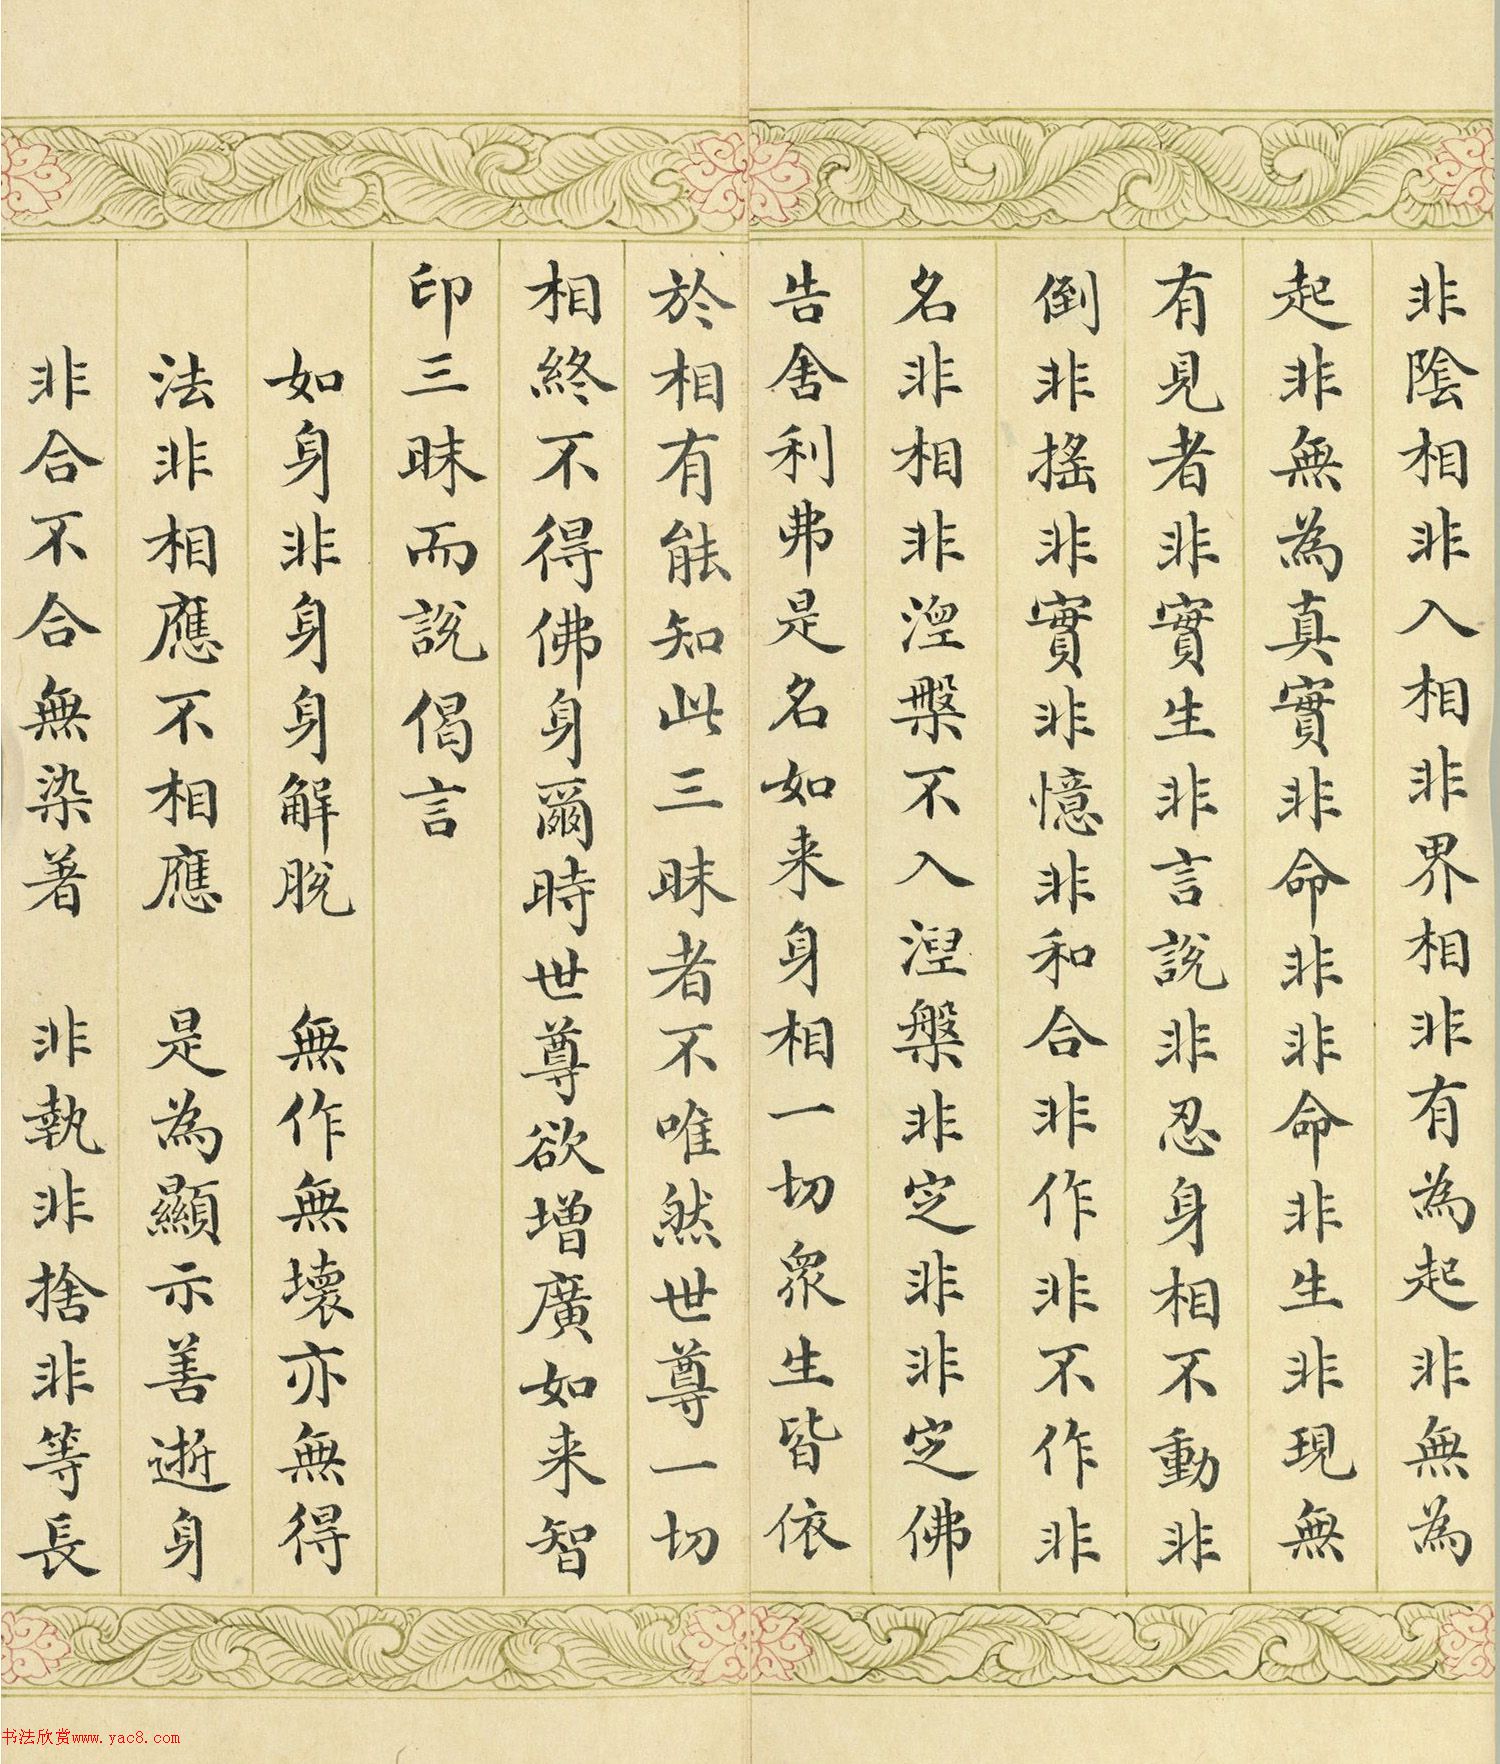 非陰相非入相非界相非有為起非無為
起非無為真實非命非非命非生非現無
有見者非實生非言說非忍身相不動非
倒非搖非實非憶非和合非作非不作非
名非相非涅槃不入涅槃非定非非定佛
告舍利弗是名如来身相一切眾生皆依
於相有能知此三昧者不唯然世尊一切
相終不得佛身爾時世尊欲增廣如来智
印三昧而說偈言
如身非身身解脫　無作無壞亦無得
法非相應不相應　是為顯示善逝身
非合不合無染著　非執非捨非等長
书法欣赏www.yac8.com